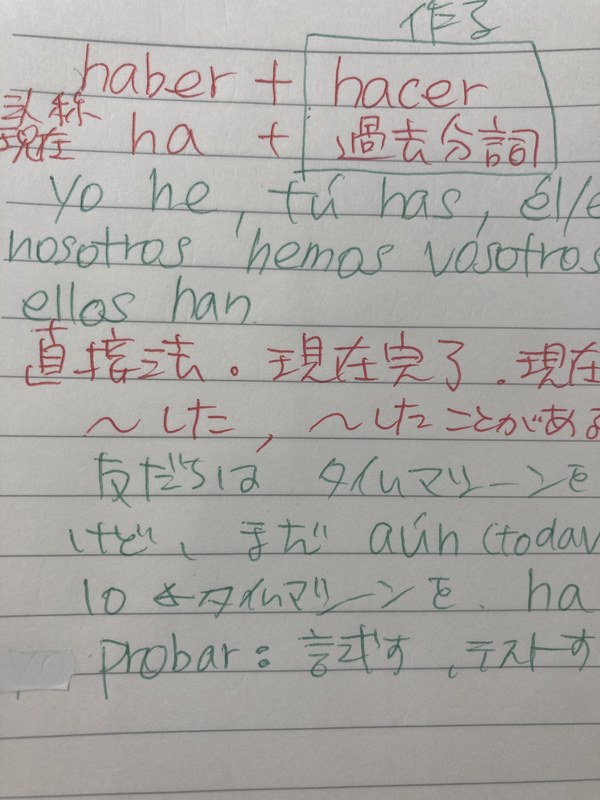 作る
haber + hacer
3人称
現在 ha + 過去分詞
yo he, tú has, él/e
nosotros hemos vosotros
ellos han
直接法。現在完了. 現在
〜した, 〜したことがある
友だちは タイムマシーンを
けど、まだ aún (todav
lo ← タイムマシーンを. ha
probar: 試す、テストす